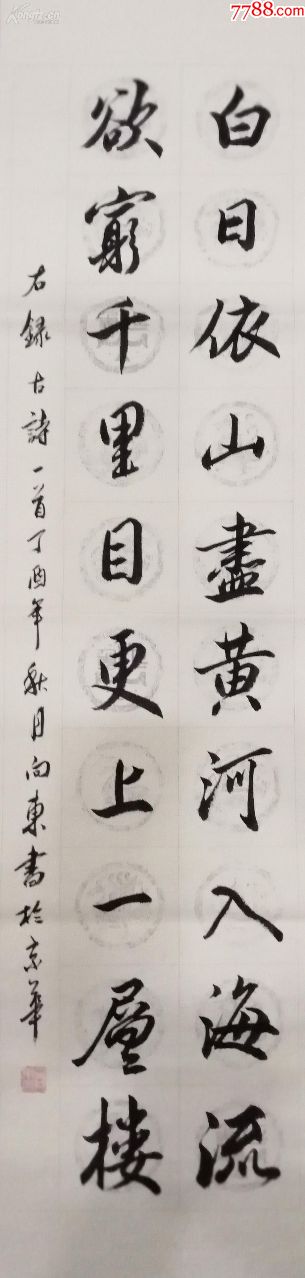 白日依山盡黄河入海流
欲窮千里目更上一層楼
右録古詩一首丁酉年秋月向東書於京華
7788.com